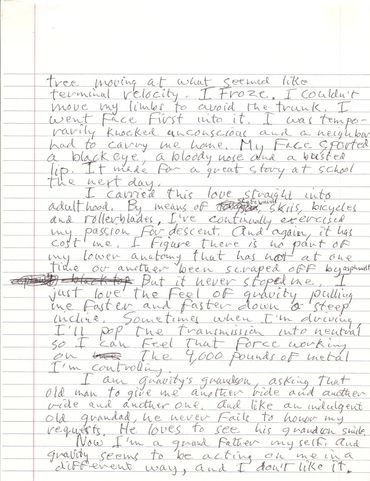 tree moving at what seemed like
terminal velocity. I froze. I couldn't
move my limbs to avoid the trunk. I
went face first into it. I was tempo-
rarily knocked unconscious and a neighbor
had to carry me home. My face sported
a black eye, a bloody nose and a busted
lip. It made for a great story at school
the next day.
I carried this love straight into
adulthood. By means of skis, bicycles
and rollerblades, I've continually exercised
my passion for descent. And again, it has
cost me. I figure there is no part of
my lower anatomy that has not at one
time or another been scraped off by asphault
But it never stoped me. I
just love the feel of gravity pulling
me faster and faster down a steep
incline. Sometimes when I'm driving
I'll pop the transmission into neutral
so I can feel that force working
on The 4,000 pounds of metal
I'm controling.
I am gravity's grandson, asking that
old man to give me another ride and another
ride and another one. And like an indulgent
old grandad, he never fails to honor my
requests. He loves to see his grandson smile.
Now I'm a grand father myself. And
gravity seems to be acting on me in a
different way, and I don't like it.